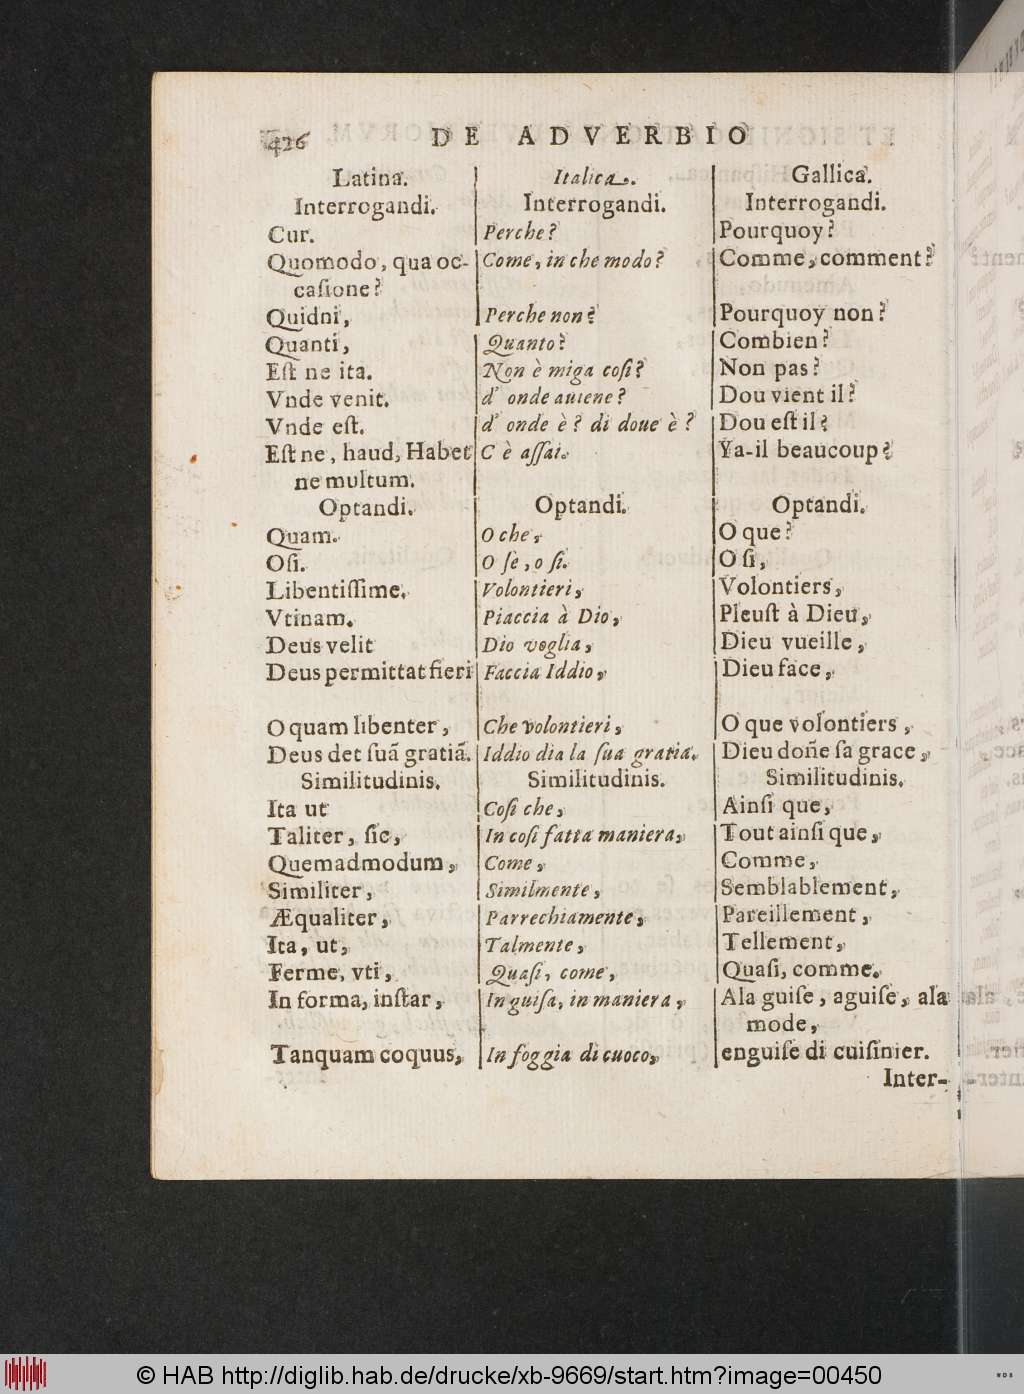 426 DE ADVERBIO
Latina. Italica. Gallica.
Interrogandi. Interrogandi. Interrogandi.
Cur. Perche? Pourquoy?
Quomodo, qua oc- Come, in che modo? Comme, comment?
caſione?
Quidni, Perche non? Pourquoy non?
Quanti, Quanto? Combien?
Eſt ne ita. Non è miga coſi? Non pas?
Vnde venit. d' onde auiene? Dou vient il?
Vnde eſt. d' onde è? di doue è? Dou eſt il?
Eſt ne, haud, Habet C è aſſai. Ya-il beaucoup?
ne multum.
Optandi. Optandi. Optandi.
Quam. O che, O que?
Oſi. O ſe, o ſi. O ſi,
Libentiſſime. Volontieri, Volontiers,
Vtinam. Piaccia à Dio, Pleuſt à Dieu,
Deus velit Dio voglia, Dieu vueille,
Deus permittat fieri Faccia Iddio, Dieu face,
O quam libenter, Che volontieri, O que volontiers,
Deus det ſuã gratiã. Iddio dia la ſua gratia. Dieu doñe ſa grace,
Similitudinis. Similitudinis. Similitudinis.
Ita ut Coſi che, Ainſi que,
Taliter, ſic, In coſi fatta maniera, Tout ainſi que,
Quemadmodum, Come, Comme,
Similiter, Similmente, Semblablement,
Æqualiter, Parrechiamente, Pareillement,
Ita, ut, Talmente, Tellement,
Ferme, vti, Quaſi, come, Quaſi, comme.
In forma, inſtar, In guiſa, in maniera, Ala guiſe, aguiſe, ala
mode,
Tanquam coquus, In foggia di cuoco, enguiſe di cuiſinier.
Inter-
© HAB http://diglib.hab.de/drucke/xb-9669/start.htm?image=00450